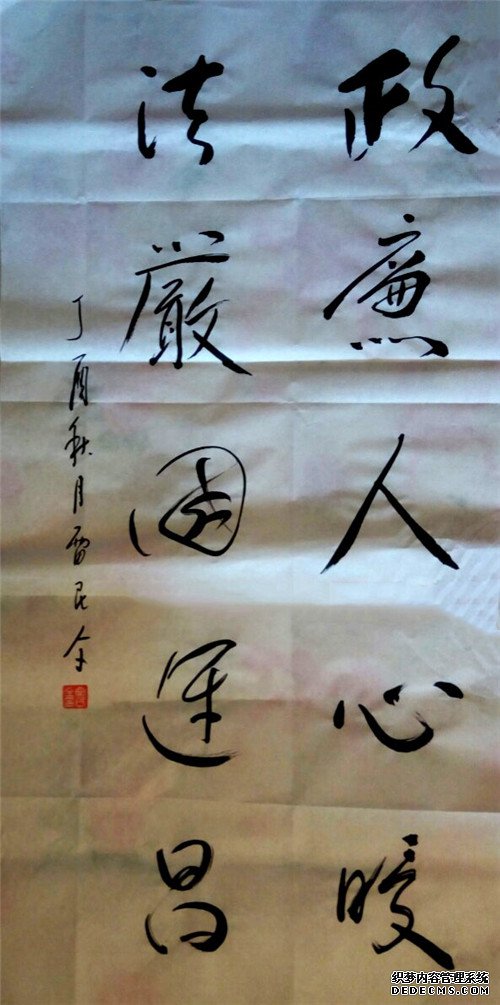 政廉人心暖
法嚴國運昌
丁酉秋月雷民全
织梦内容管理系统
DEDECMS.COM